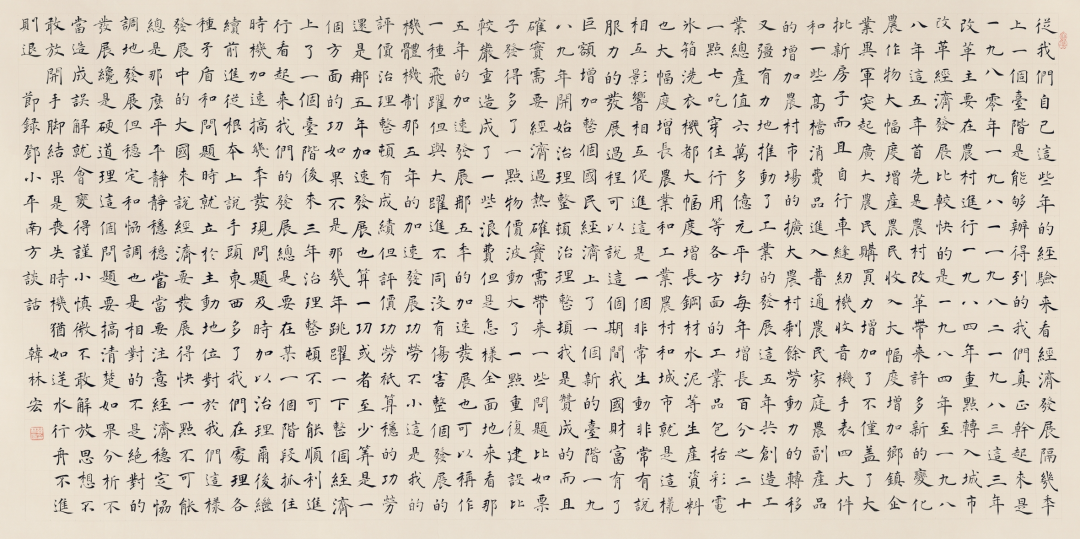 從我們自己這些年的經驗来看經濟發展隔幾年
上一個臺階是能够辦得到的我們真正幹起来是
一九八零年一九八一一九八二一九八三這三年
改革主要在農村進行一九八四年重點轉入城市
改革經濟發展比較快的是一九八四年至一九八
八年這五年首先是農村改革帶来許多新的變化
農作物大幅度增產農民收入大幅度增加鄉鎮企
業異軍突起廣大農民購買力增加了不僅盖了大
批新房子而且自行車縫紉機收音機手表四大件
和一些高檔消費品進入普通農民家庭農副產品
的增加農村市場的擴大農村剩餘勞動力的轉移
又彊有力地推動了工業的發展這五年共創造工
業總產值六萬多億元平均每年增長百分之二十
一點七吃穿住行用等各方面的工業品包括彩電
氷箱洗衣機都大幅度增長鋼材水泥等生產資料
也大幅度增長農業和工業農村和城市就是這樣
相互影響相互促進這是一個非常生動非常有説
服力的發展過程可以説這個期間我國財富有了
巨額增加整個國民經濟上了一個新的臺階一九
八九年開始治理整頓治理整頓我是贊成的而且
確實需要經濟過熱確實需帶来一些問題比如票
子發得多了一點物價波動大了一點重復建設比
較嚴重造成了一些浪費但是怎樣全面地来看那
五年的加速發展那五年的加速發展也可以稱作
一種飛躍但與大躍進不同没有傷害整個發展的
機體機制那五年的加速發展功勞不小這是我的
評價治理整頓有成績但評價功勞衹算穩的功勞
還是那五年加速發展也算一功或者至少算是一
個方面的功如果不是那幾年跳躍一下整個經濟
上了一個臺階後来三年治理整頓不可能順利進
行看起来我們的發展總是要在某一個階段抓住
時機加速搞幾年發現問題及時加以治理爾後繼
續前進從根本上説手頭東西多了我們在處理各
種矛盾和問題時就立於主動地位對於我們這樣
發展中的大國来説經濟要發展得快一點不可能
總是那麽平平静静穩穩當當要注意經濟穩定協
調地發展但穩定和協調也是相對的不是絶對的
發展纔是硬道理這個問題要搞清楚如果分析不
當造成誤解就會變得謹小慎微不敢解放思想不
敢放開手脚結果是喪失時機猶如逆水行舟不進
則退 節録鄧小平南方談話 韓林宏